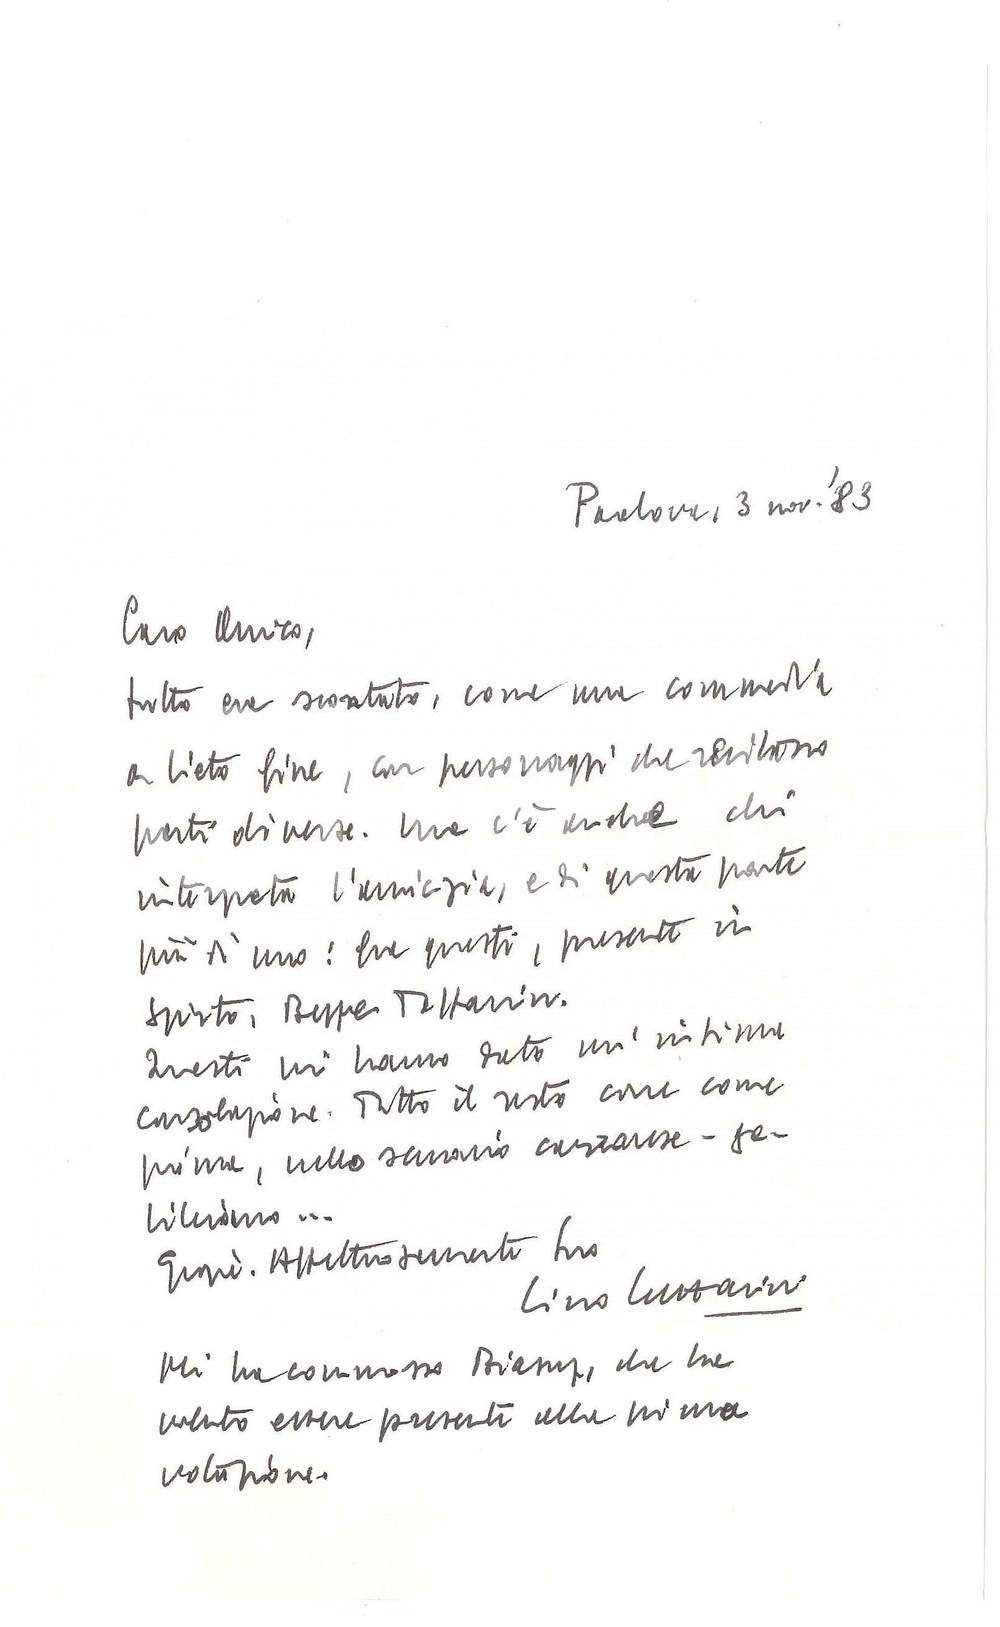 Padova, 3 nov. '83
Caro Amico,
tutto era scontato, come una commedia
a lieto fine, con personaggi che recitano
parti diverse. Ma c'è anche chi
interpreta l'amicizia, e di questa parte
più di uno: fra questi, presente in
spirito, Beppe
Questi mi hanno dato un'intima
consolazione. Tutto il resto come
prima, nello scenario - ga-
lileiano ...
Grazie. Affettuosamente Suo
Lino Lazzarini
Mi ha commosso, che ha
voluto essere presente alla prima
votazione.